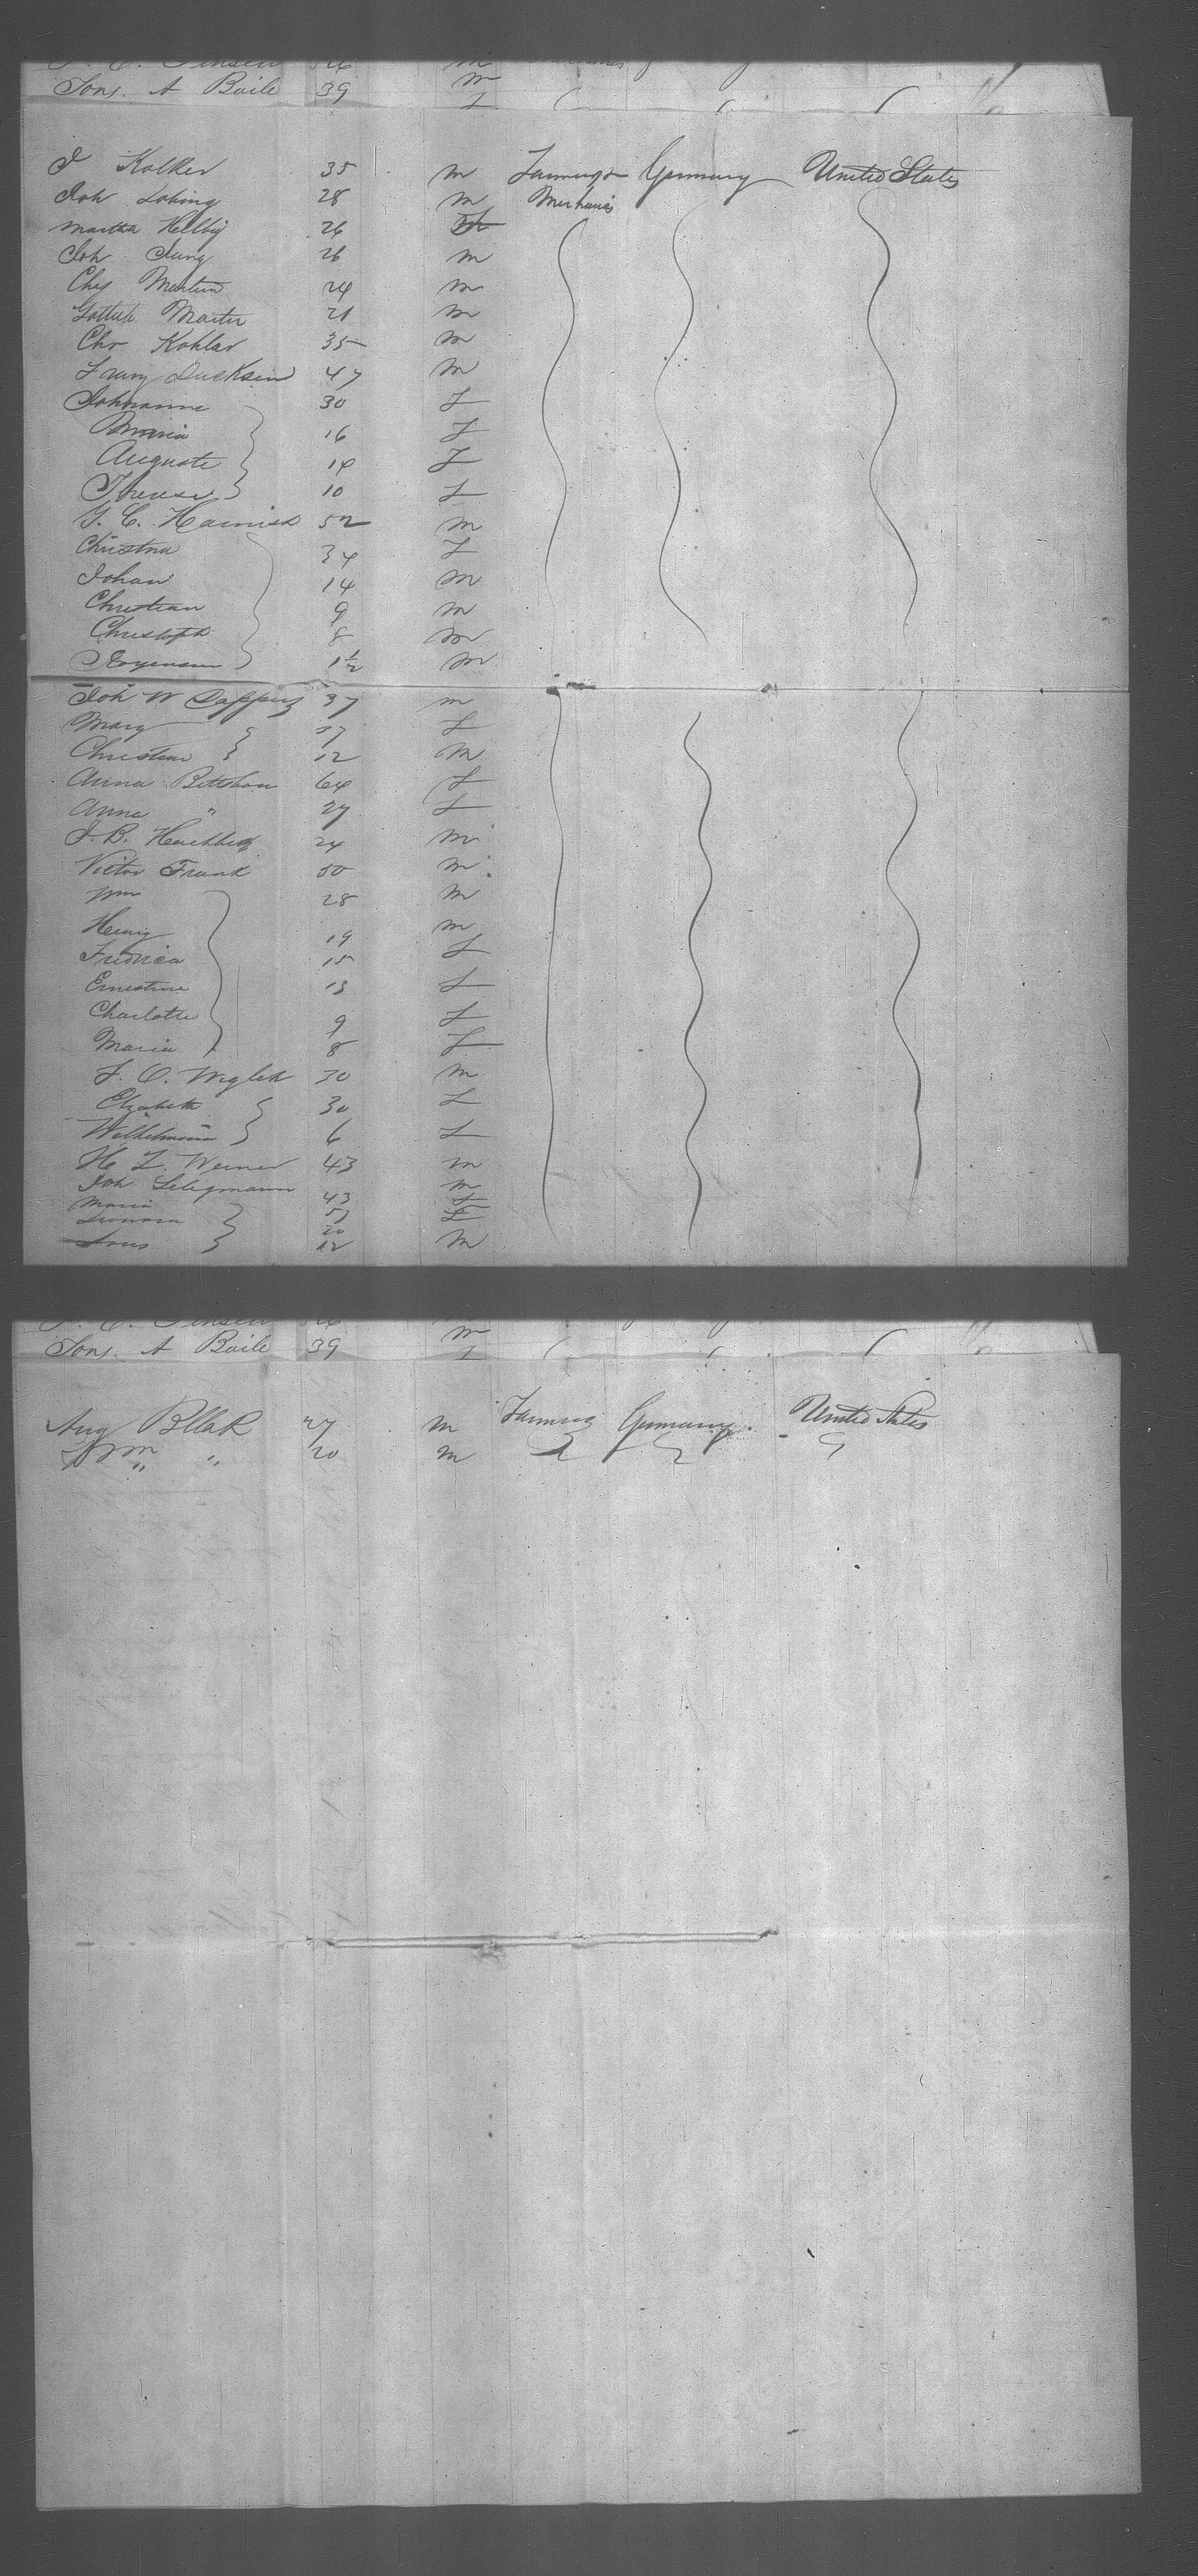 Jons. A Baile 39 m
J Kolker 35 m Farming & Germany United States
Joh Lohing 28 m Mechanics
Martha Helbig 26
Joh Jung 26 m
Chs Martin 24 m
Gottlieb Martin 21 m
Chr Kohlar 35 m
47 m
Johanna 30 F
Maria 16 F
Auguste 14 F
Therese 10 F
J. C. Harnisch 52 m
Christna 34 F
Johan 14 m
Christian 9 m
Christoph 8 m
1 1/2 m
Joh W 37 m
Mary 37 F
Christian 12 m
Anna 64 F
Anna " 27 F
J. B. 24 m
Victor Frank 50 m
Wm 28 m
Henry 19 m
Fredrica 15 F
Ernestine 13 F
Charlotte 9 F
Maria 8 F
30 m
Elizabeth 30 F
Wilhelmina 6 F
H L. Werner 43 m
Joh Seligmann 43 m
Maria 57 F
Leonora 20 F
12 m
Jons. A Baile 39 m
Aug Bllak 27 m Farming Germany United States
Wm " 20 m